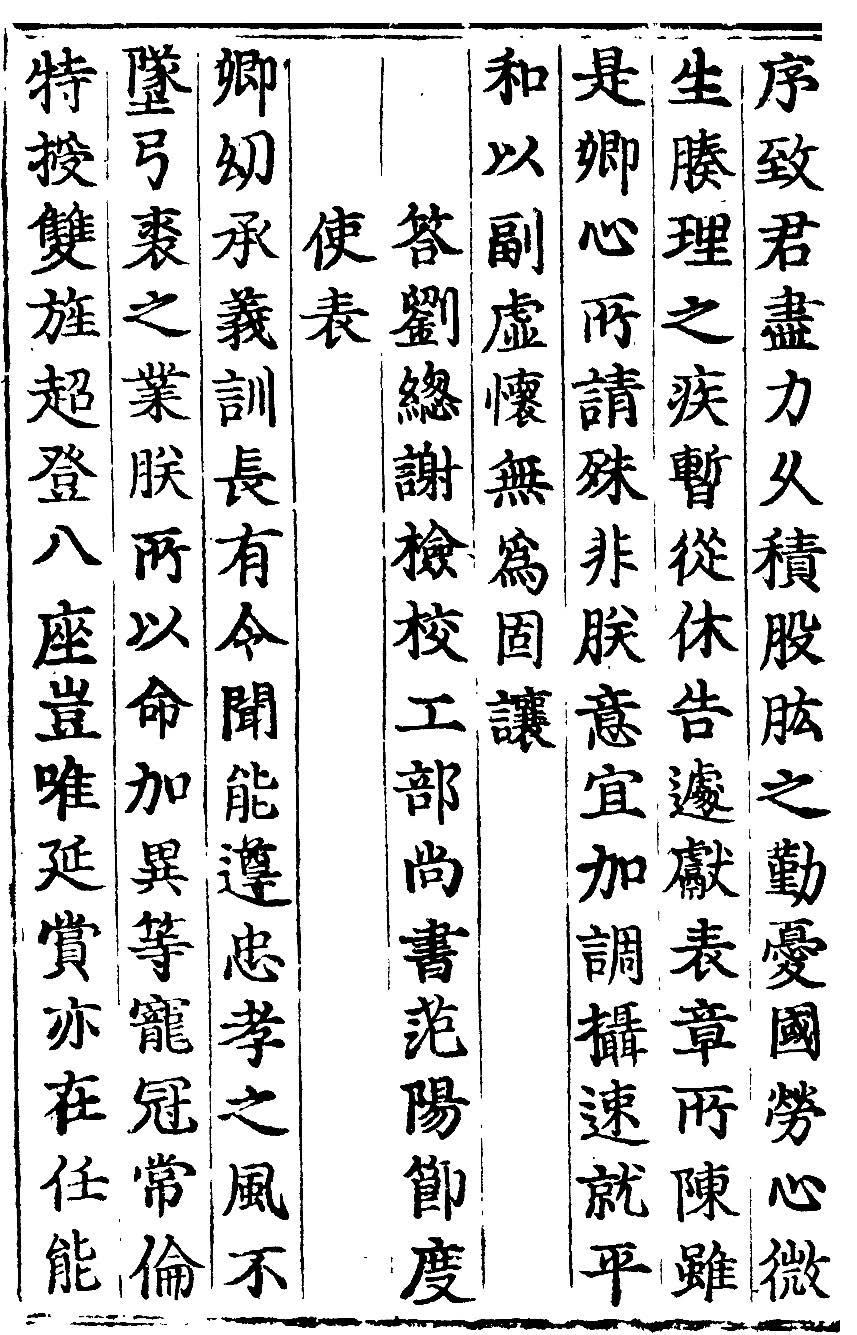 序致君盡力乆積股肱之勤憂國勞心微
生腠理之疾暫從休告遽獻表章所陳雖
是卿心所請殊非朕意宜加調攝速就平
和以副虛懷無爲固讓
答劉緫謝檢校工部尚書范陽節度
使表
卿幼承義訓長有令聞能遵忠孝之風不
墜弓裘之業朕所以命加異等寵冠常倫
特授雙旌超登八座豈唯延賞亦在任能